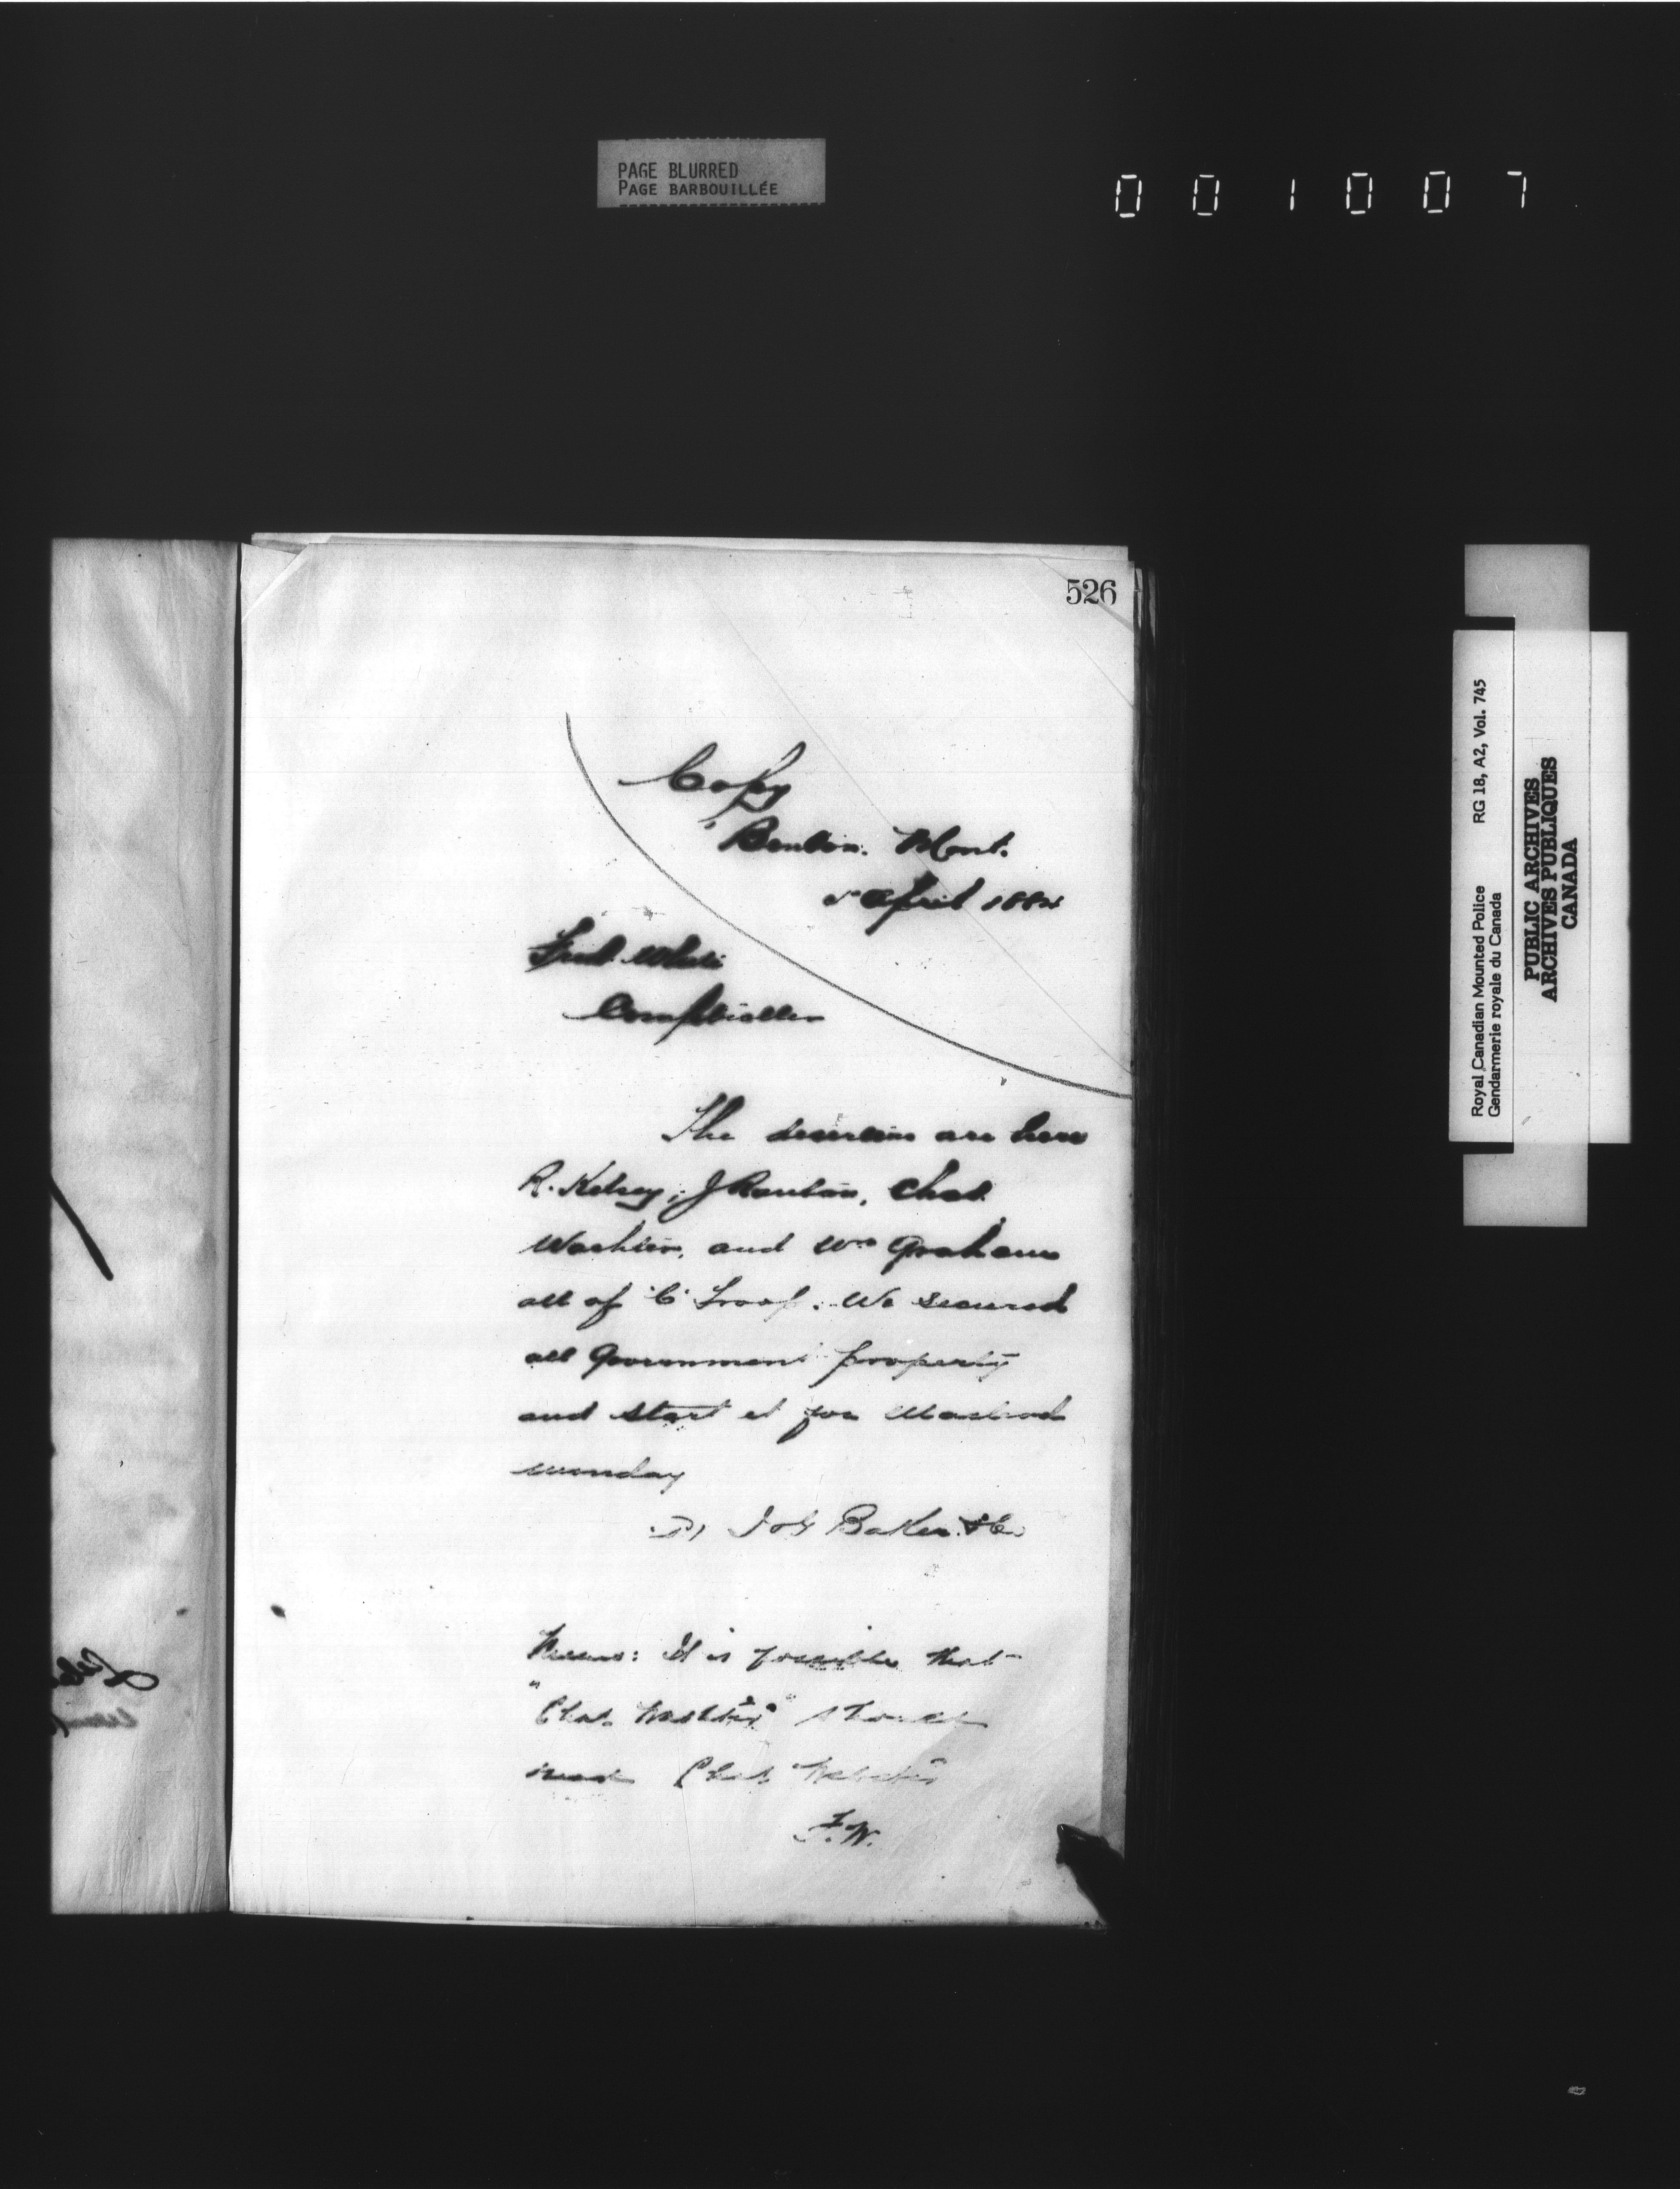 PAGE BLURRED
PAGE BARBOUILLÉE
001007
526
Copy
Benton. Mont.
5 April 1884
Fred White
Comptroller
The deserters are here
R. Kelsey, J Ranton, Chas.
Washter, and Wm Graham
all of "C" Troop. We secured
all Government property
and start it for Macleod
monday
I G Baker & Co
Memo: It is possible that
"Chas. Washter" should
read Chas Webster
F.W.
Royal Canadian Mounted Police RG 18, A2, Vol. 745
Gendarmerie royale du Canada
PUBLIC ARCHIVES
ARCHIVES PUBLIQUES
CANADA